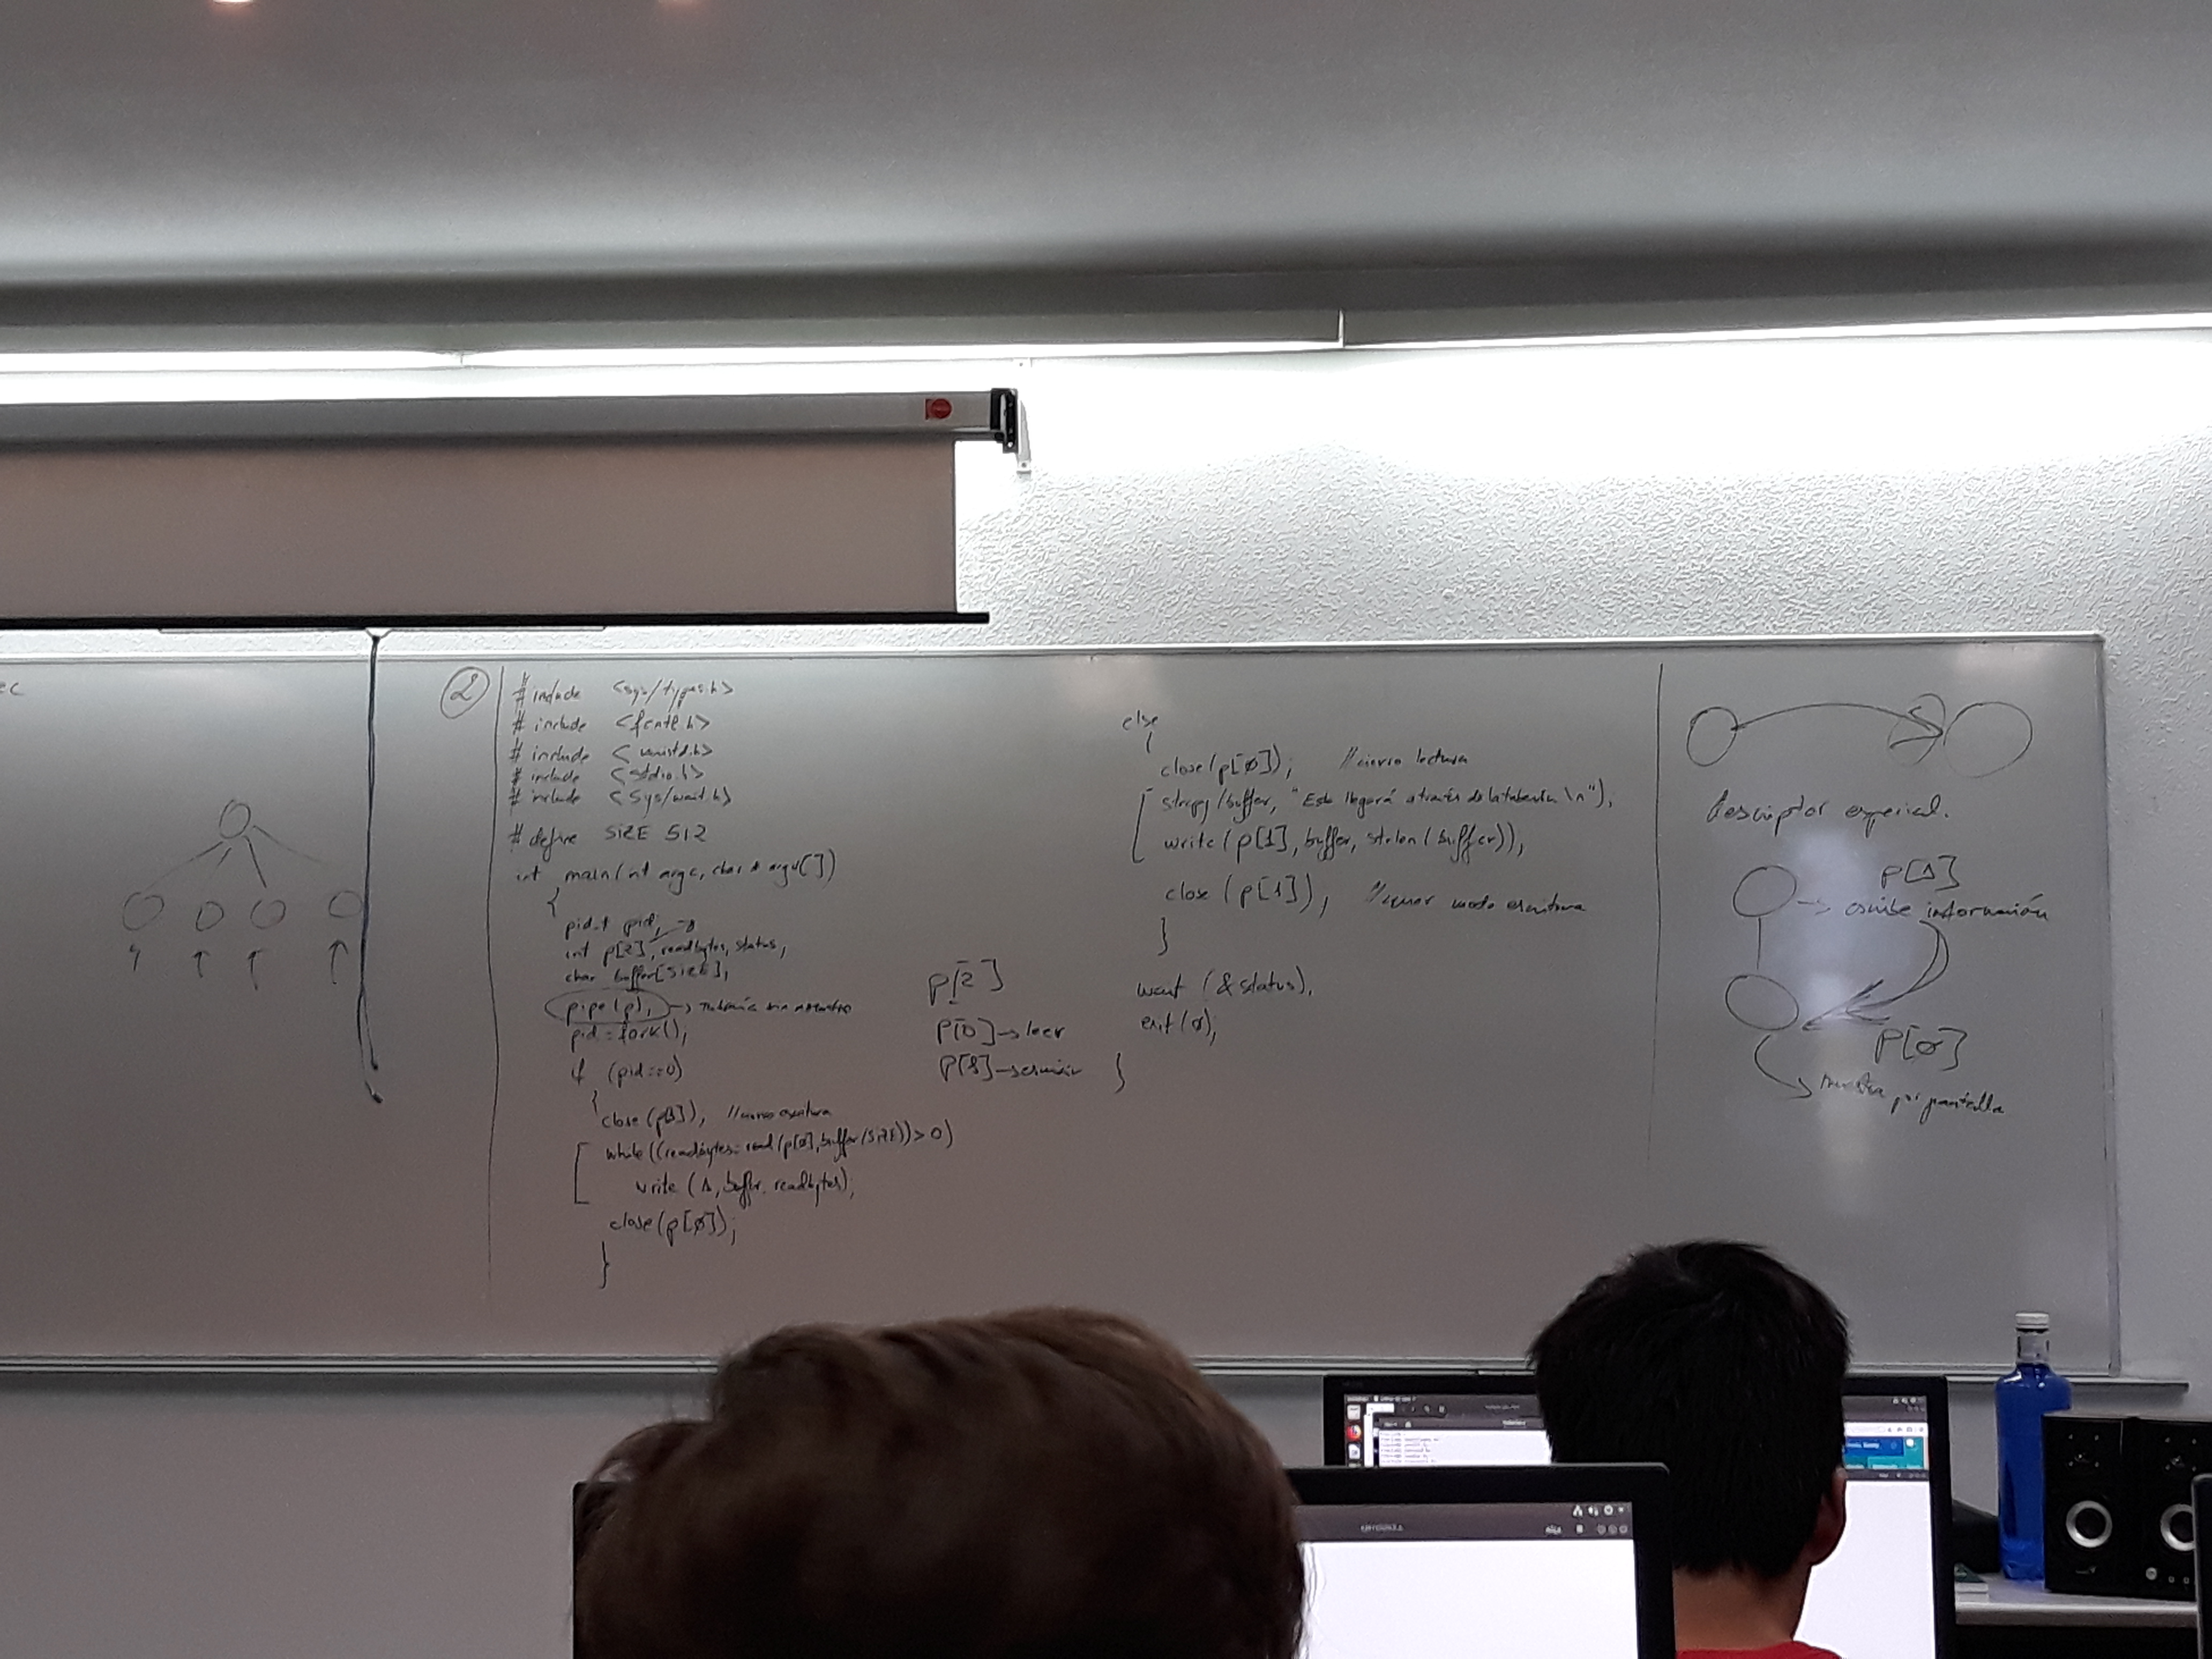 ec
2
# include <sys/types.h>
# include <fcntl.h>
# include <unistd.h>
# include <stdio.h>
# include <sys/wait.h>
# define SIZE 512
int main(int argc, char * argv[])
{
pid_t pid;
int p[2], readbytes, status,
char buffer[SIZE],
pipe(p), → Tubería sin nombre
pid=fork(),
if (pid==0)
{
close(p[1]), //cierro escritura
while((readbytes=read(p[0],buffer,SIZE))>0)
write (1, buffer, readbytes);
close(p[0]);
}
p[2]
p[0]→leer
p[1]→escribir
else
{
close(p[0]); //cierro lectura
strcpy(buffer, "Esto llegará a través de la tubería \n"),
write(p[1], buffer, strlen(buffer)),
close (p[1]), modo escritura
}
wait (&status),
exit(0);
}
Descriptor especial.
p[1]
→ escribe información
p[0]
muestra por pantalla